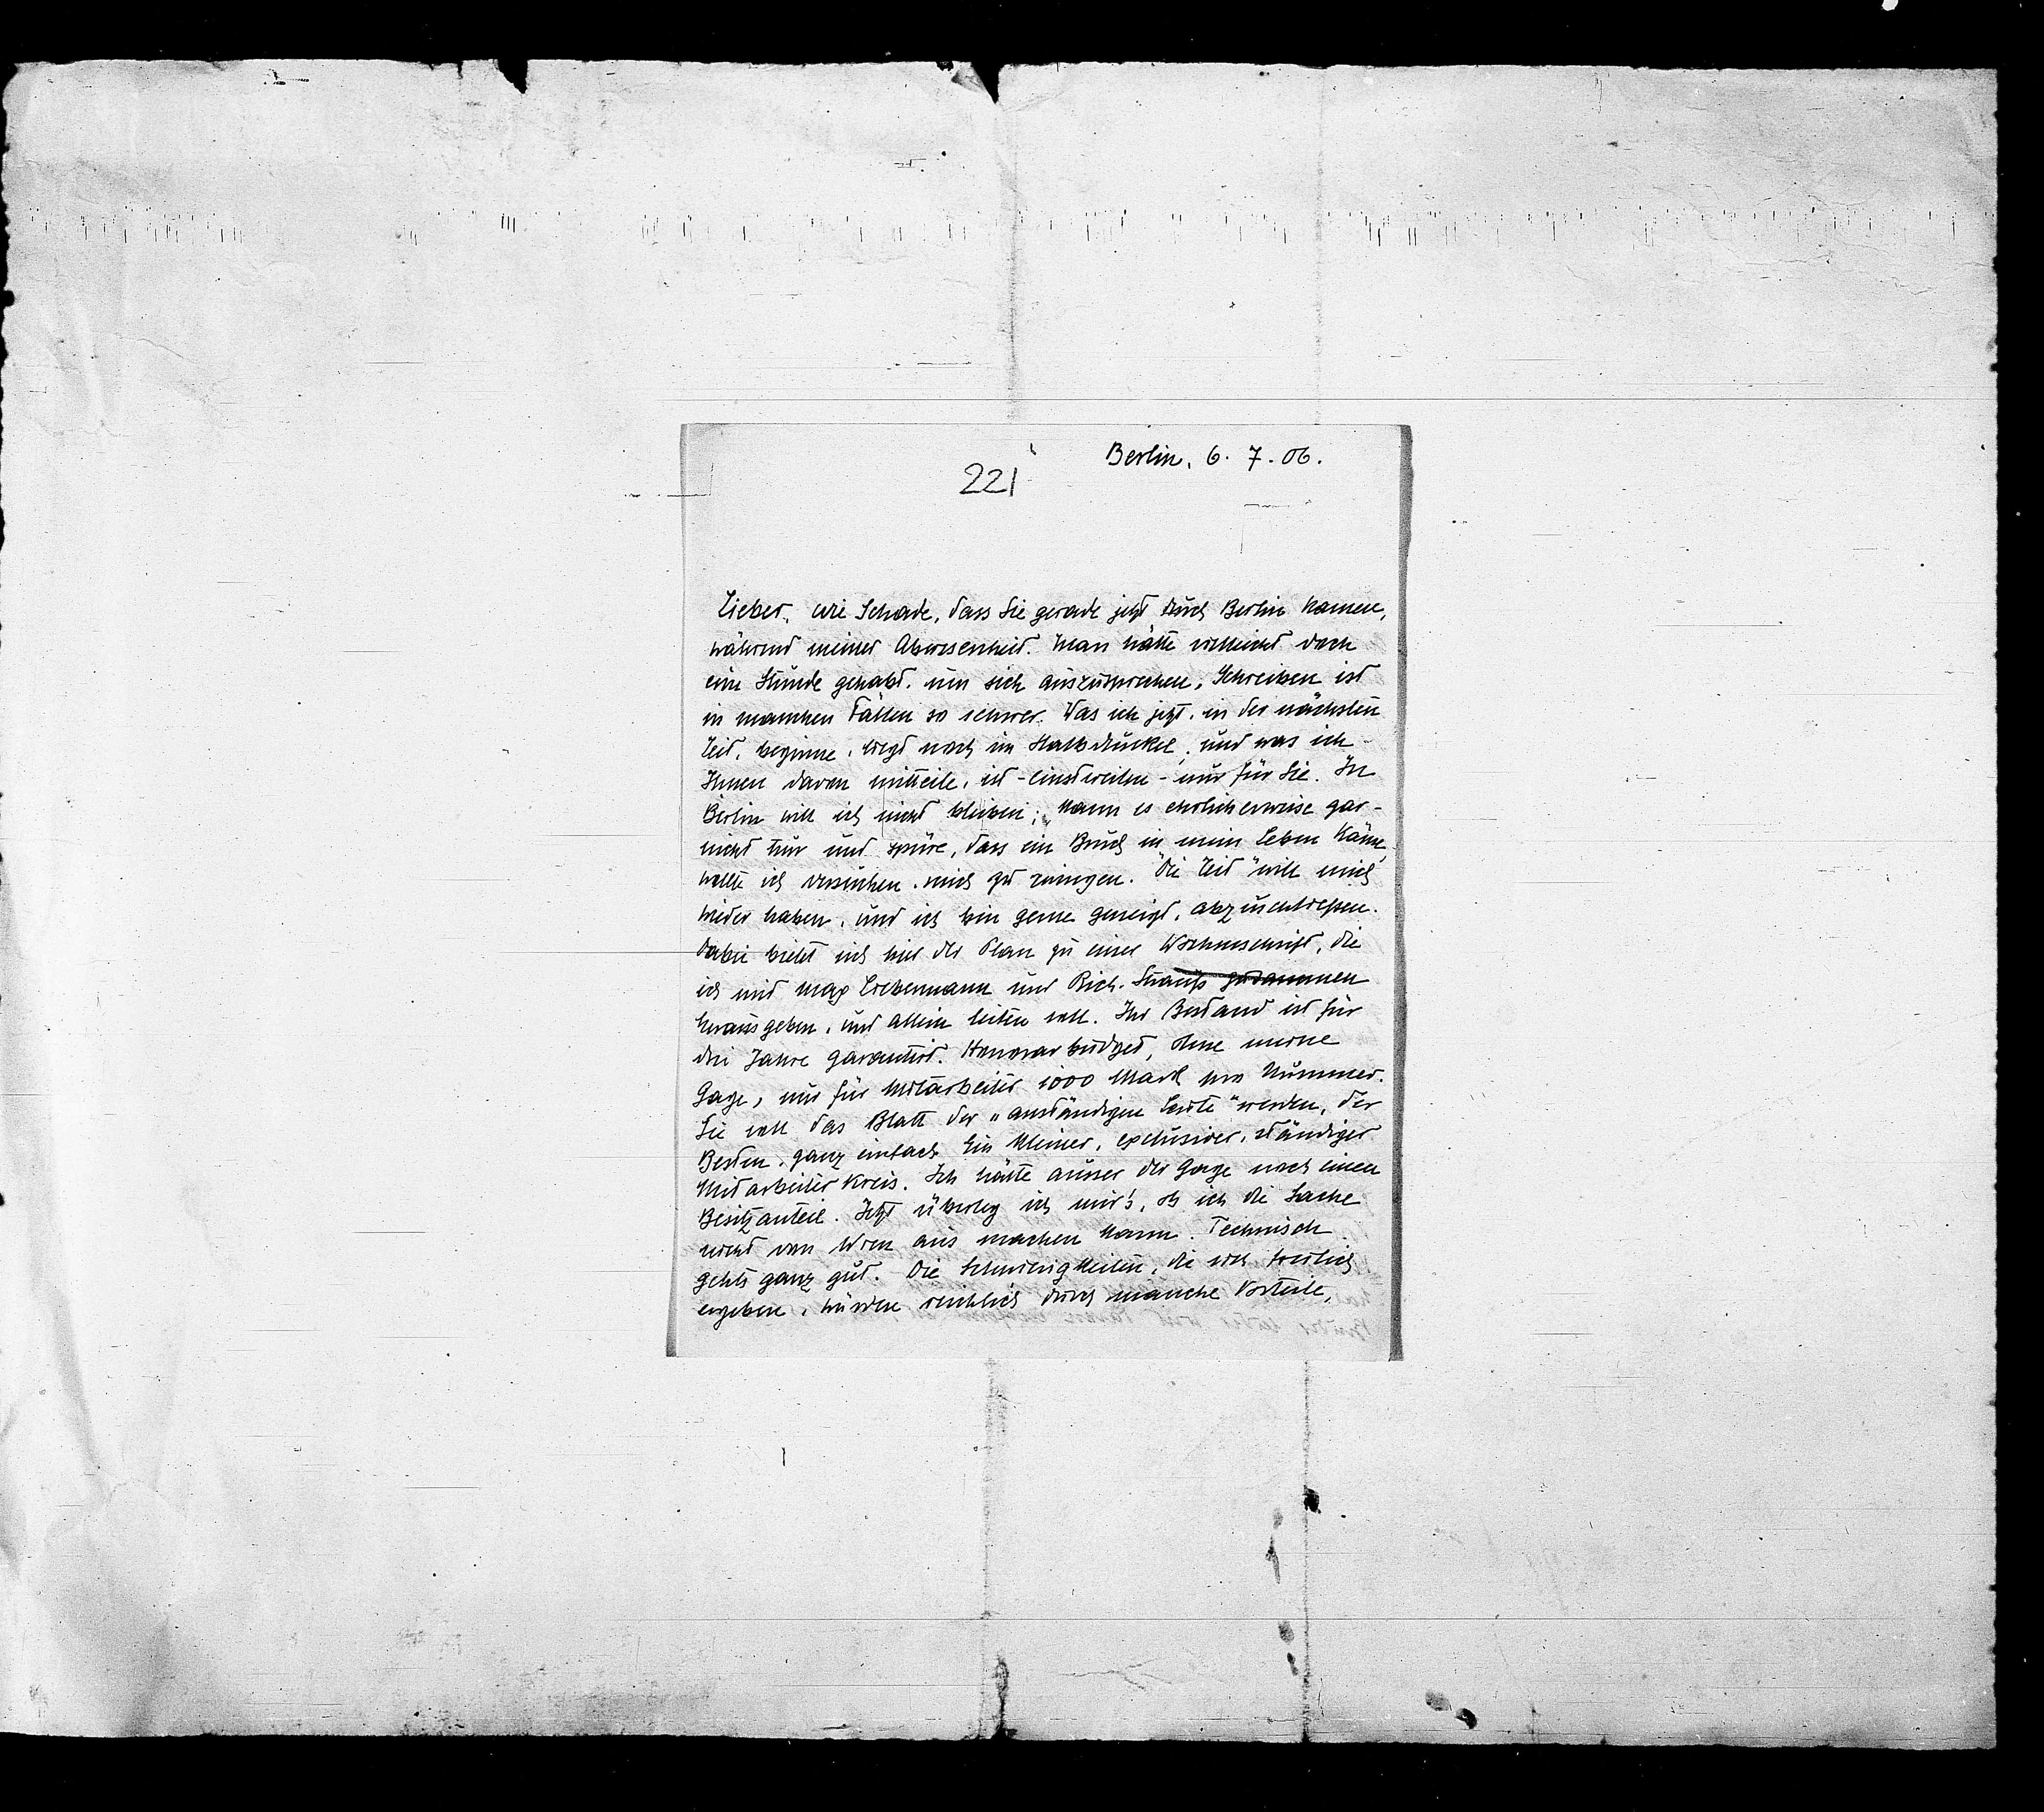 Berlin, 6. 7. 06.
221
Lieber, wie Schade, dass Sie gerade jetzt durch Berlin kamen,
während meiner Abwesenheit. Man hätte vielleicht doch
eine Stunde gehabt, um sich auszusprechen, Schreiben ist
in manchen Fällen so schwer. Was ich jetzt, in der nächsten
Zeit, beginne, liegt noch im Halbdunkel, und was ich
Ihnen davon mitteile, ist - einstweilen - nur für Sie. In
Berlin will ich nicht bleiben; kann es ehrlicherweise gar-
nicht tun und spüre, dass ein Bruch in mein Leben käme,
wollte ich versuchen, mich zu zwingen. "Die Zeit" will mich
wieder haben, und ich bin gerne geneigt, abzuschließen.
Dabei bietet sich hier der Plan zu einer Wochenschrift, die
ich mit Max Liebermann und Rich. Strauß zusammen
herausgeben, und allein leiten soll. Ihr Bestand ist für
drei Jahre garantirt. Honorarbudget, ohne meine
Gage, nur für Mitarbeiter 1000 Mark pro Nummer.
Sie soll das Blatt der „anständigen Leute" werden, der
Besten, ganz einfach. Ein kleiner, exclusiver, ständiger
Mitarbeiterkreis. Ich hätte ausser der Gage noch einen
Besitzanteil. Jetzt überleg ich mir's, ob ich die Sache
nicht von Wien aus machen kann. Technisch
gehts ganz gut. Die Schwierigkeiten, die sich freilich
ergeben, würden reichlich durch manche Vorteile,